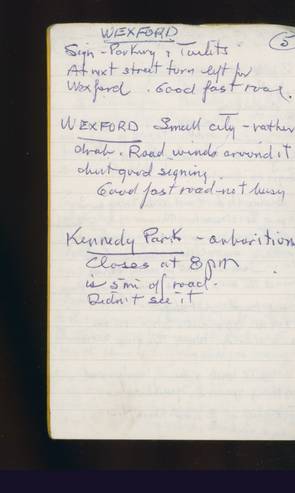 WEXFORD
5
Sign - Parking & Toilets
At next street turn left for
Wexford. Good fast road.
WEXFORD Small city - rather
drab. Road winds around it
but good signing.
Good fast road - not busy
Kennedy Park - arboretum
Closes at 8 pm
is 5 mi off road.
Didn't see it